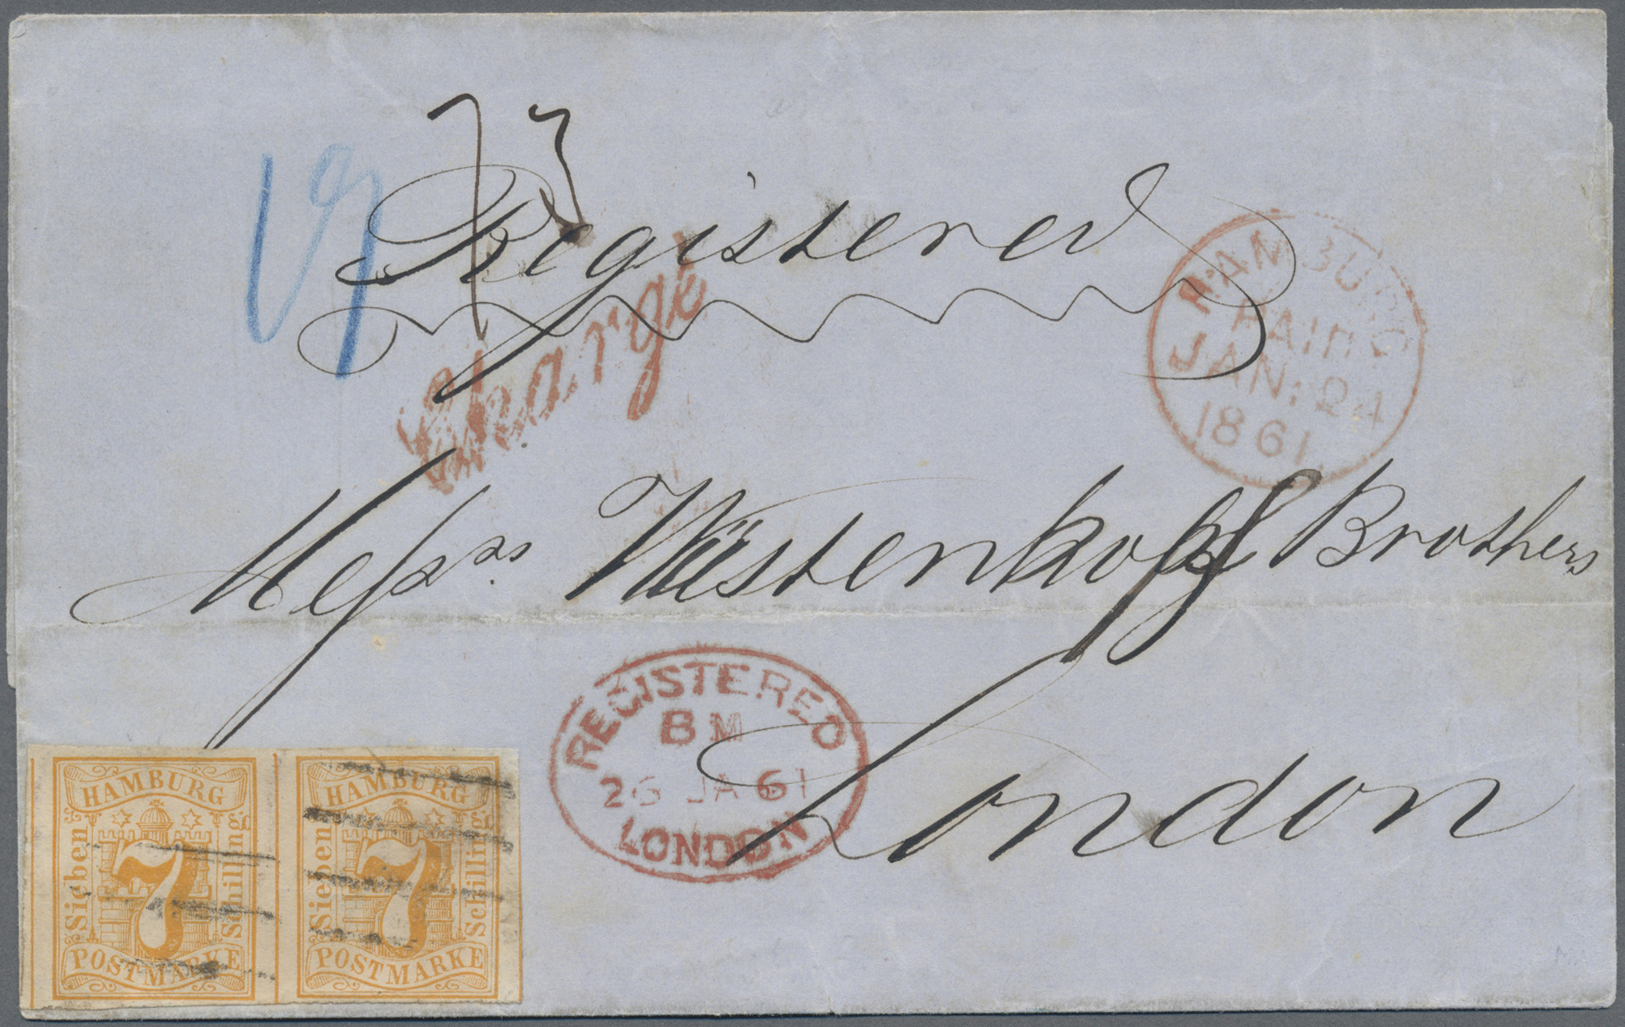 73
Registered
Chargé
HAMBURG
PAID
JAN: 24
1861
Messrs Wüstenhoff Brothers
London
REGISTERED
BM
26 JA 61
LONDON
HAMBURG
Sieben
7
Schilling
POSTMARKE
HAMBURG
Sieben
7
Schilling
POSTMARKE